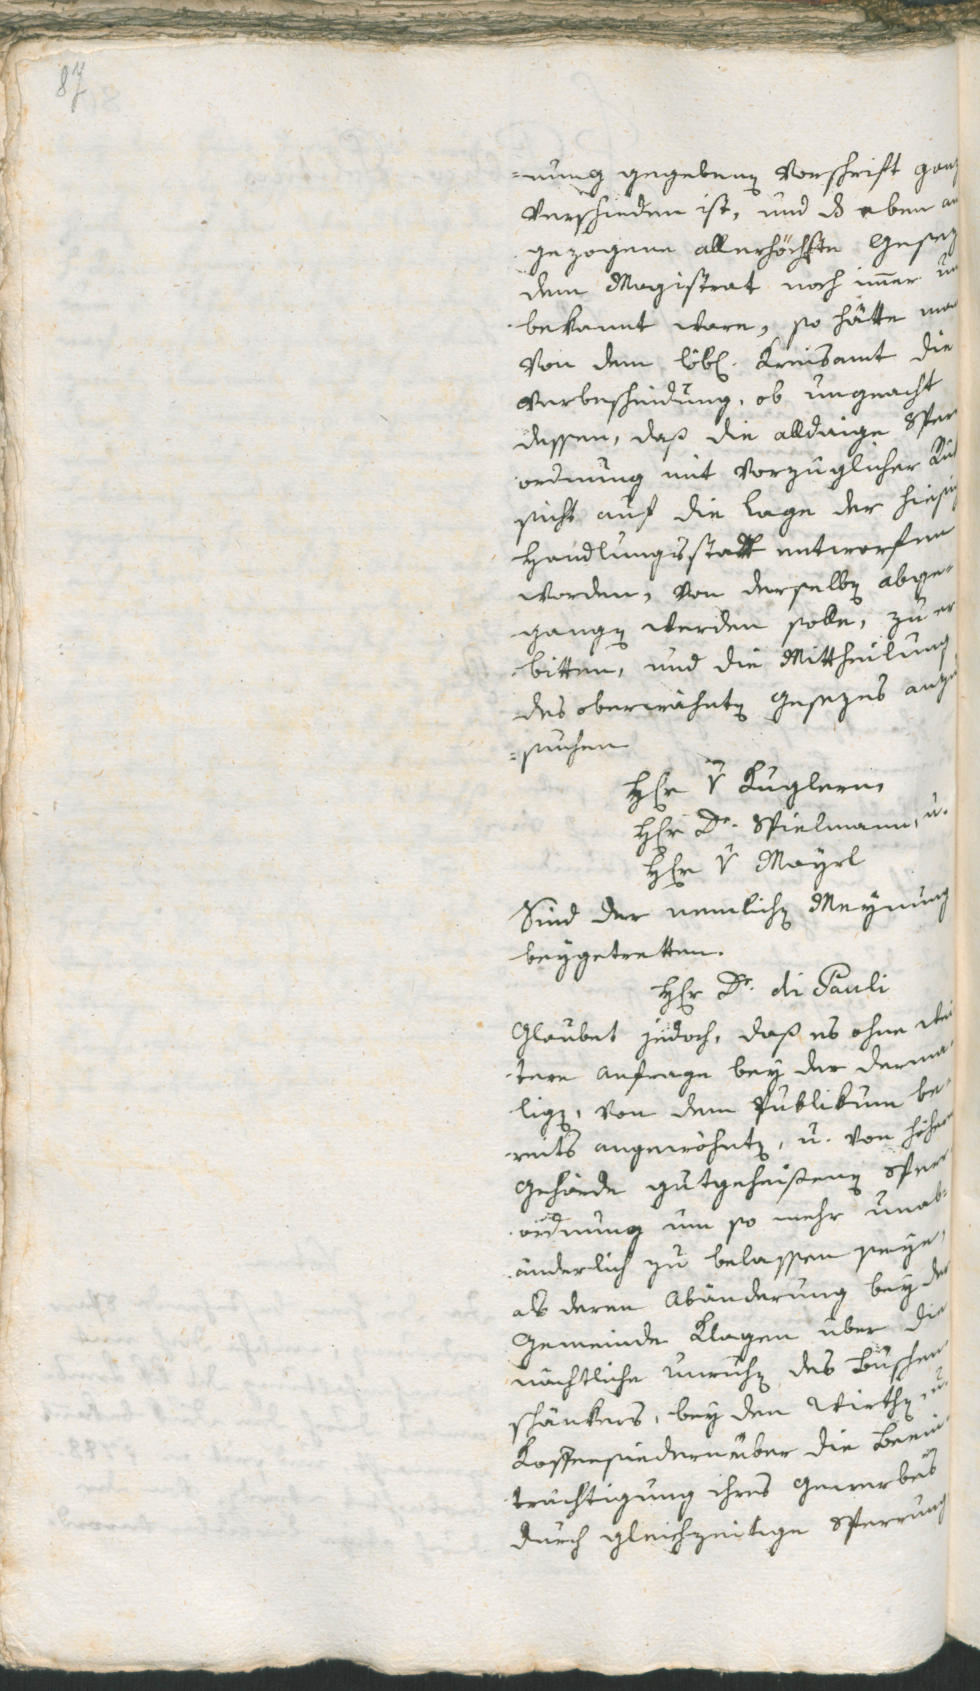 87
=nung gegebenen Vorschrift ganz
verschieden ist, und d eben an
gezogene allerhöchste Gesetz
dem Magistrat noch immer un
bekannt ware, so hätte man
von dem löbl. Kreisamt die
Verbescheidung, ob ungeacht
dessen, daß die alldaige Sper
ordnung mit vorzüglicher Rük
sicht auf die Lage der hiesig
Handlungsstadt entworfen
worden, von derselben abge-
gangen werden solle, zu er
bitten, und die Mittheilung
des oberwähnten Gesezes anzu
=suchen
Hr v Kuglern,
Hr Dr. Spielmann, u.
Hr v Mayrl
Sind der nemlichen Meynung
beygetretten.
Hr Dr. di Pauli
Glaubet jedoch, daß es ohne wei
tere Anfrage bey der derma-
ligen, von dem Publikum be-
reits angewöhnten, u. von höher
Gehörde gutgeheißenen Sperr
ordnung um so mehr unab-
änderlich zu belassen seye,
als deren Abänderung bey der
Gemeinde Klagen über die
nächtliche Unruhen des Buschen
schänkens, bey den Wirthen u.
Kaffeesiedern über die Beein-
trächtigung ihres Gewerbes
durch gleichzeitige Sperrung